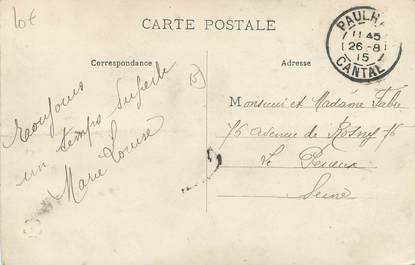 10€
CARTE POSTALE
PAULH
11 45
26-8
15
CANTAL
Correspondance
Adresse
Toujours
un temps superbe
Marie Louise
Monsieur et Madame Fabre
75 avenue de Rosny 75
Le Perreux
Seine